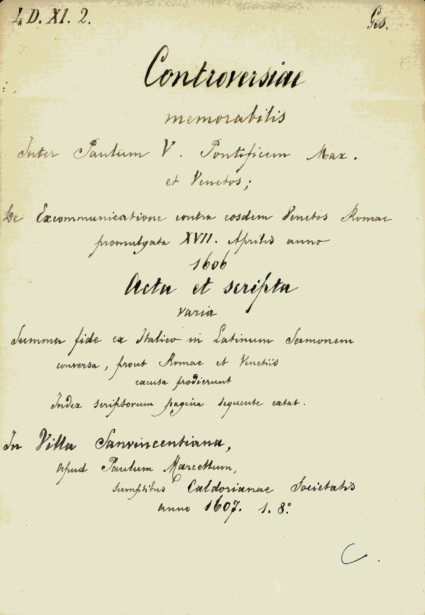 4 D. XI. 2.
Ges.
Controversiae
memorabilis
Inter Paulum V. Pontificem Max.
et Venetos;
De Excommunicatione contra eosdem Venetos Romae
promulgata XVII. Aprilis anno
1606
Acta et scripta
varia
Summa fide ex Italico in Latinum Sermonem
conversa, prout Romae et Venetiis
excusa prodierunt
Index scriptorum pagina sequente extat.
In Villa Sanvincentiana,
apud Paulum Marcellum,
sumptibus Caldorianae Societatis
anno 1607. 1. 8°.
C.